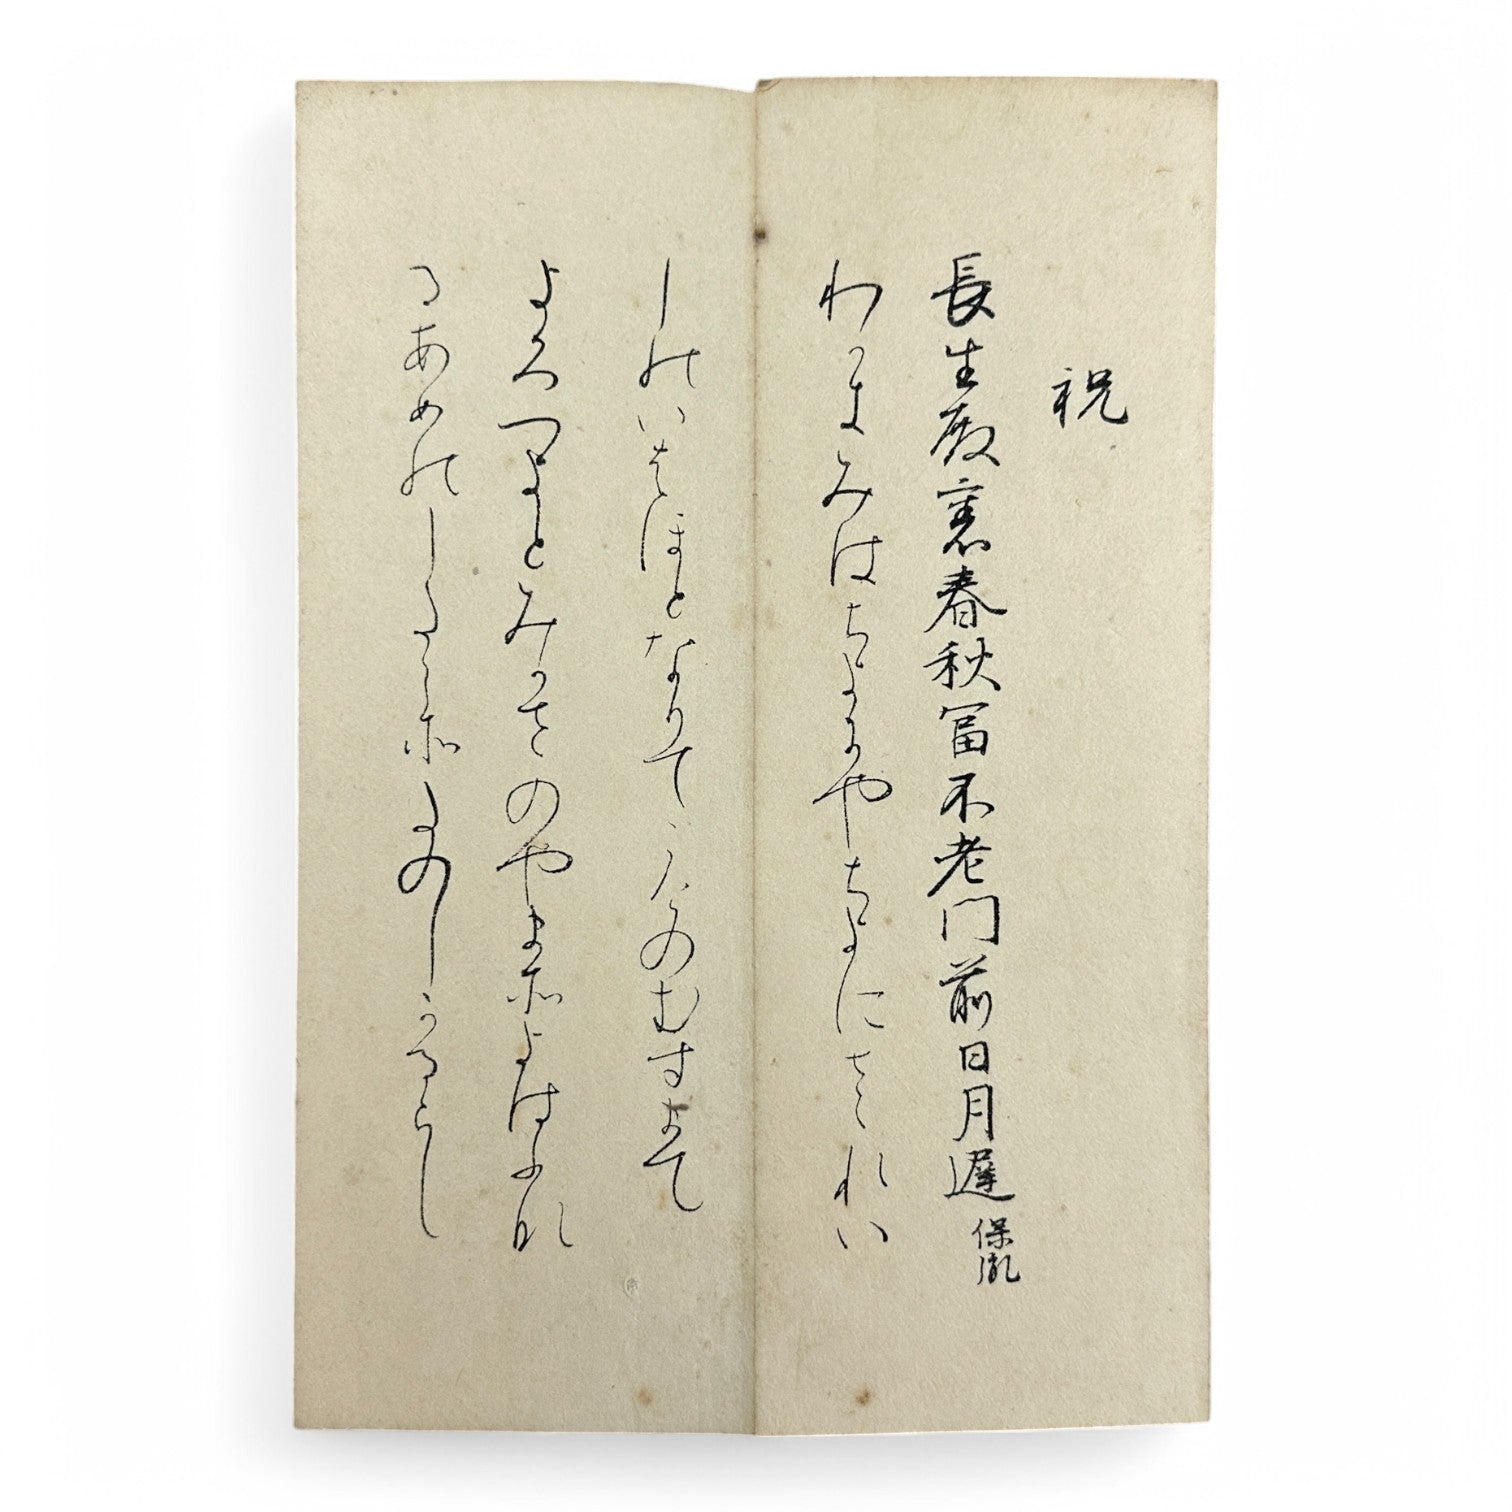 祝
長生殿裏春秋富不老門前日月遅 保胤
わかきみはちよにやちよにさゝれい
しのいはほとなりてこけのむすまて
よろつよとみかさのやまそよはふな
るあめのしたこそたのしかるらし